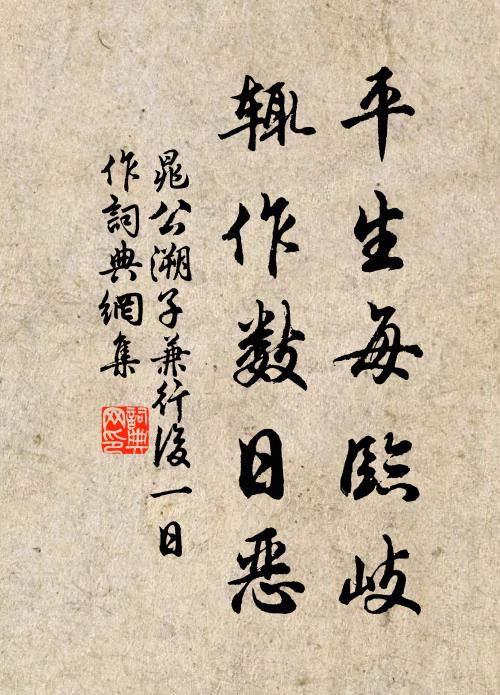 平生每臨岐
輒作數日惡
晁公溯子兼行後一日
作詞典網集
詞典
网印